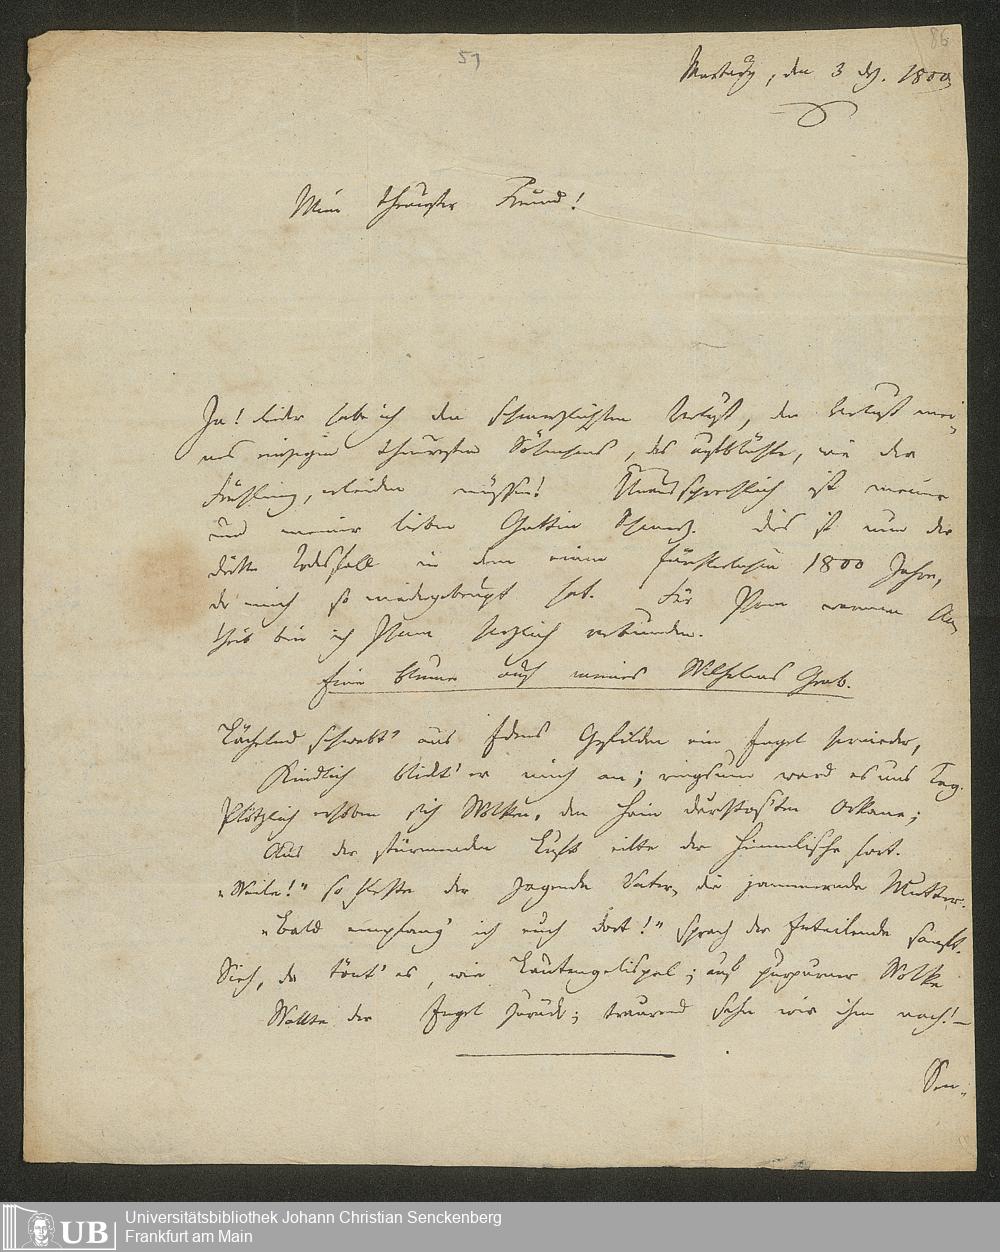 51
86
Marburg, den 3 Dz. 1800
Mein theurster Freund!
Ja! leider habe ich den schmerzlichsten Verlust, den Verlust mei-
nes einzigen theuresten Söhnchens, das aufblühte, wie der
Frühling, erleiden müssen! Unaussprechlich ist meiner
und meiner lieben Gattin Schmerz. Dies ist nun der
dritte Todesfall in dem einen 1800 Jahre,
der mich so niedergebeugt hat. Für Ihren warmen An-
theil bin ich Ihnen herzlich verbunden.
Eine Blume auf meines Wilhelms Grab.
Lächelnd schwebt' aus Edens Gefilden ein Engel hernieder,
Kindlich blickt' er mich an; ringsum ward es uns Tag.
Plötzlich erhoben sich Wolken, den Hain durchtos'ten Orkane;
Aus der stürmenden Luft eilte der Himmlische fort.
"Weile!" so flehte der Vater, die jammernde Mutter.
"Bald empfang' ich euch dort!" sprach der Enteilende sanft.
Sieh, da tönt' es, wie Lautengelispel; auf purpurner Wolke
Wallte der Engel zurück; traurend sahn wir ihm nach! –
Sen-
UB
Universitätsbibliothek Johann Christian Senckenberg
Frankfurt am Main